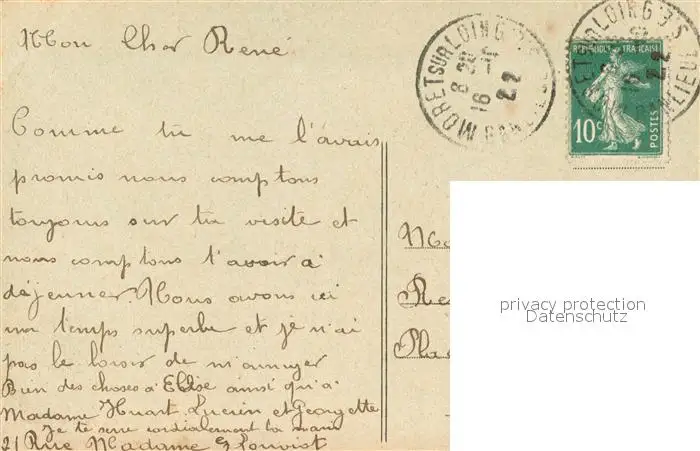 Mon Cher René
Comme tu me l'avais
promis nous comptons
toujours sur ta visite et
nous comptons t'avoir à
déjeuner. Nous avons ici
un temps superbe et je n'ai
pas le loisir de m'ennuyer
Bien des choses à Elise ainsi qu'à
Madame Huart Lucien et Georgette
Je te serre cordialement la main
21 Rue Madame G Louviot
MORET SUR LOING
8 30
16
22
REPUBLIQUE FRANÇAISE
10c
POSTES
privacy protection
Datenschutz